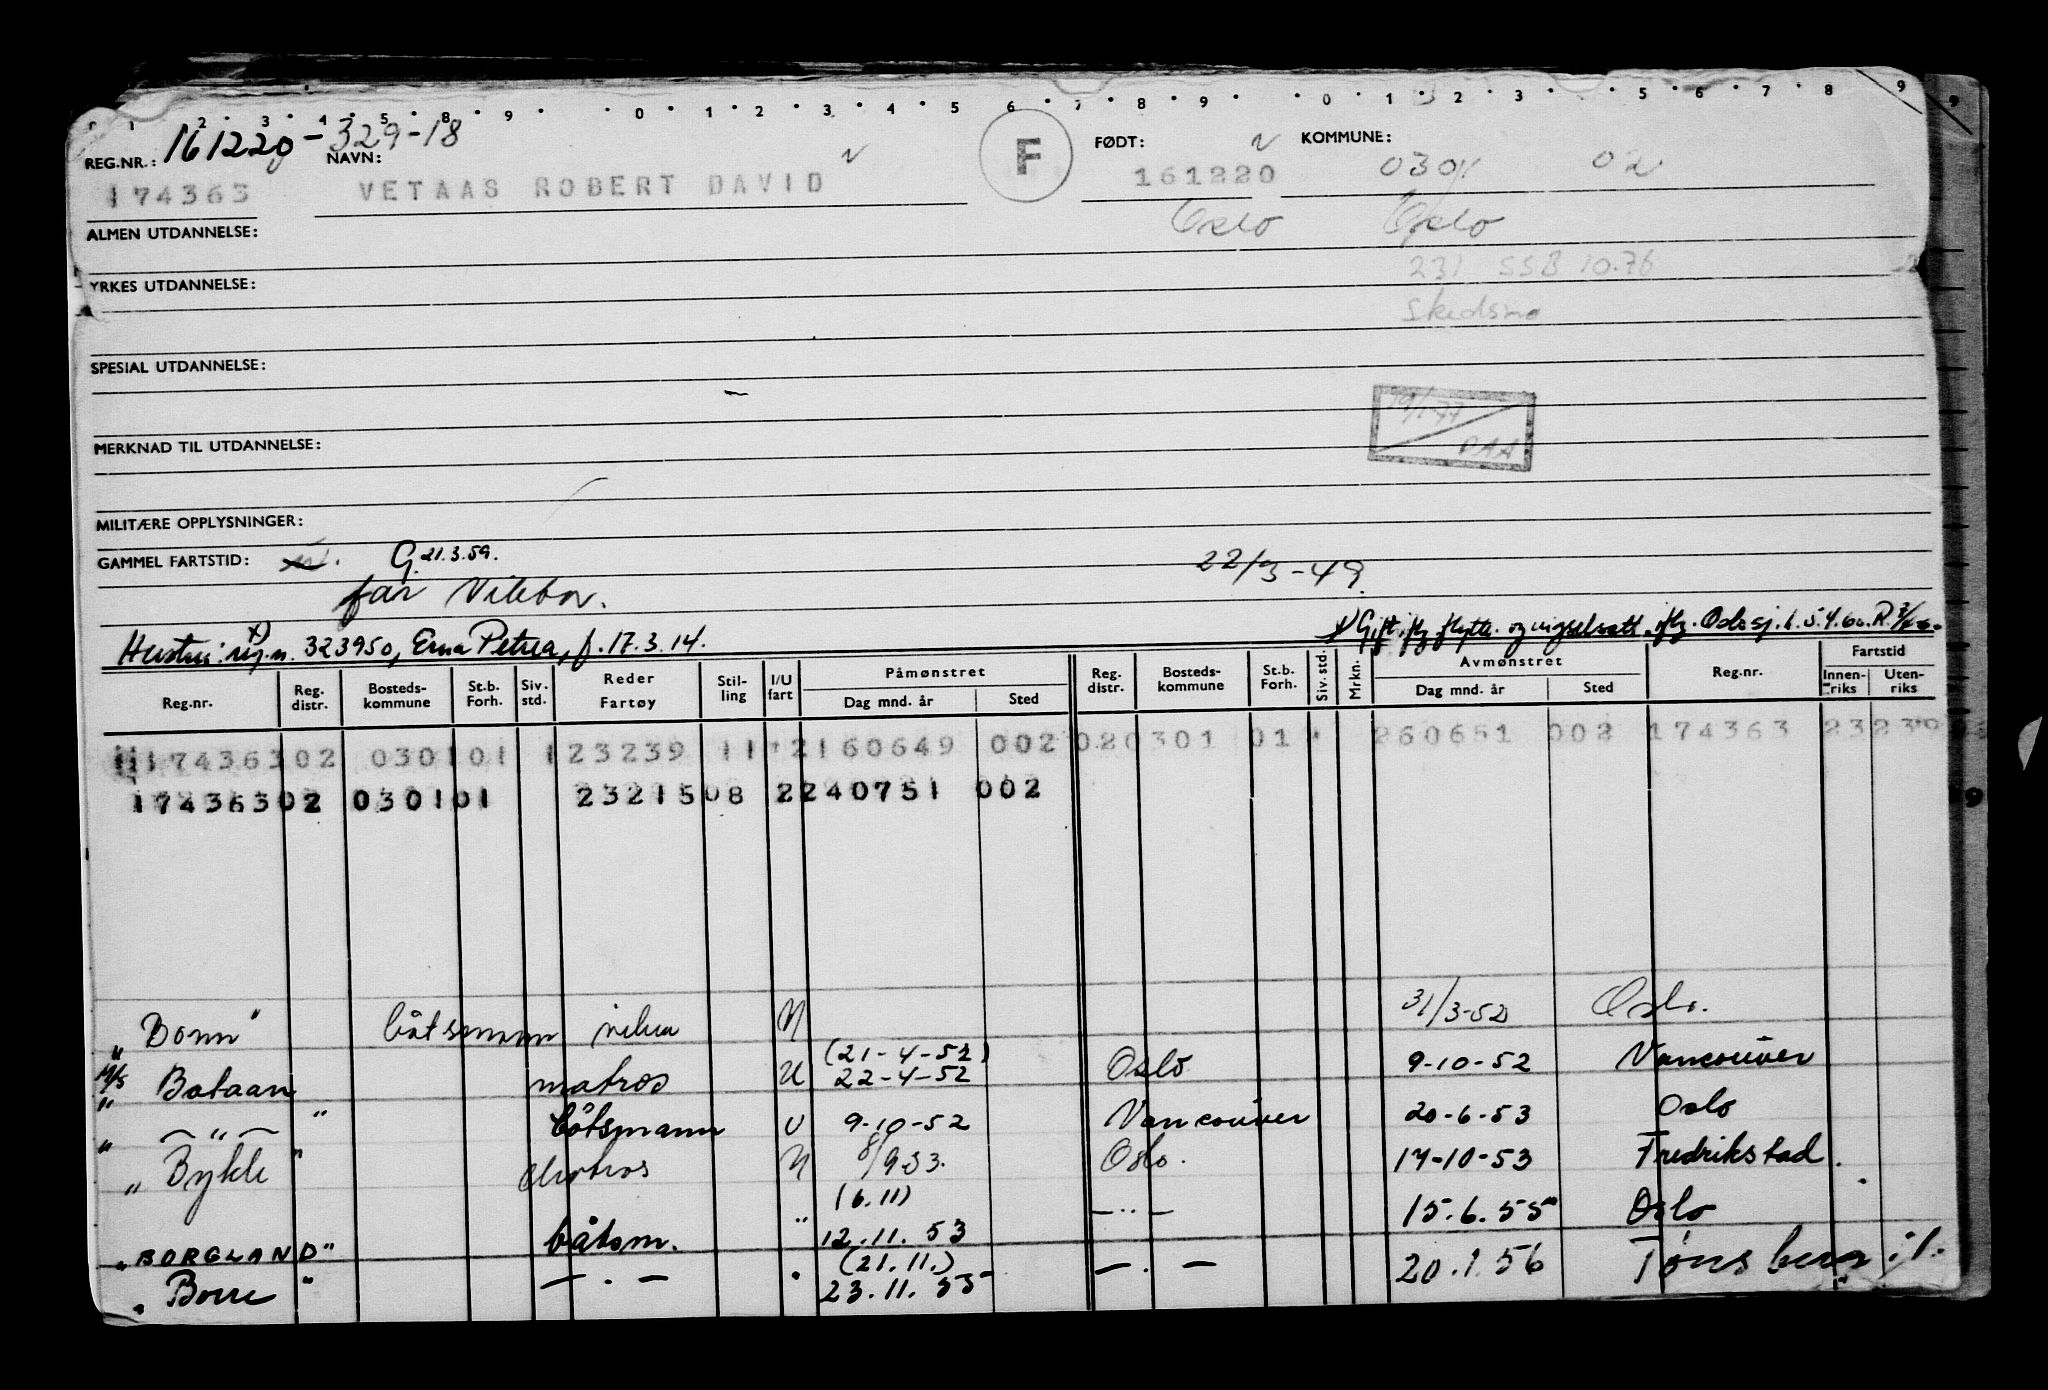 1 2 3 4 5 8 9 0 1 2 3 4 5 6 7 8 9 0 1 2 3 5 6 7 8 9
REG.NR.: 161220-329-18 NAVN: F FØDT: KOMMUNE: 0301 02
174363 VETAAS ROBERT DAVID 161220
ALMEN UTDANNELSE: Oslo Oslo
231 SSB 10.76
YRKES UTDANNELSE: Skedsmo
SPESIAL UTDANNELSE:
MERKNAD TIL UTDANNELSE: PAA
MILITÆRE OPPLYSNINGER:
GAMMEL FARTSTID: G. 21.3.59. 22/3-49.
far
Hustru: x) reg.n. 323950, Erna Petrea, f. 17.3.14. x) Gift, flg. flytte- og vigselsatt. flg. Oslo sj.
Reg.nr. Reg. distr. Bosteds-kommune St.b. Forh. Siv. std. Reder Fartøy Stil-ling I/U fart Påmønstret Dag mnd. år Sted Reg. distr. Bosteds-kommune St.b. Forh. Siv. std. Mrkn. Avmønstret Dag mnd. år Sted Reg.nr. Fartstid Innen-riks Uten-riks
174363 02 0301 01 1 23239 11 2 160649 002 02 0301 01 260651 002 174363 23 23
174363 02 0301 01 23215 08 2 240751 002
" Bonn" båtsmann U 31/3-52 Oslo.
M/S Bataan matros U (21-4-52) 22-4-52 Oslo 9-10-52 Vancouver
" — " — " båtsmann U 9-10-52 Vancouver 20-6-53 Oslo
" Bykle " Matros U 8/9-53. Oslo. 17-10-53 Fredrikstad.
"BORGLAND" båtsm. " (6.11) 12.11.53 — " — 15.6.55 Oslo
" Borre " — " — " (21.11.) 23.11.55 — " — 20.1.56 Tønsberg